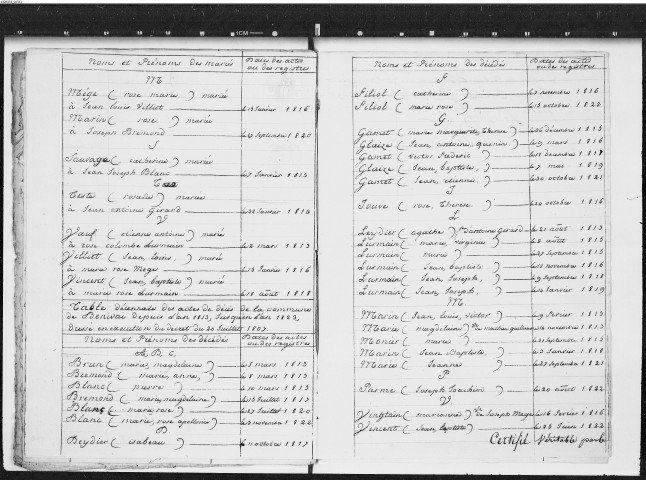 Noms et Prénoms des mariés Dates des actes ou des registres
M
Mége ( rose marie ) mariée
à Jean Louis Villiet le 13 Janvier 1816
Marin ( rose ) mariée
à Joseph Bremond le 9 Septembre 1820
S
Sauvage ( catherine ) mariée
à Jean Joseph Blanc le 27 Janvier 1813
T
Teste ( rosalie ) mariée
à Jean antoine Girard 1814
V
( etienne antoine ) marié
à rose colombe Lurmain mars 1813
Villiet ( Jean, Louis, ) marié
à marie rose Mege le 13 Janvier 1816
Vincent ( Jean, baptiste ) marié
à marie rose Lurmain le 18 août 1818
Table décennale des actes de décès de la commune
de Benivay depuis l'an 1813, Jusqu'en l'an 1823,
Dressé en execution du decret du 20 Juillet 1807.
Noms et Prénoms des décédés Dates des actes ou des registres
A, B, C,
Brun ( marie, magdelaine ) mars 1813
Bremond ( marie, anne, ) mars 1813
Blanc ( pierre ) mars 1813
Bremond ( marie, magdelaine ) Juillet 1817
Blanc ( marie, rose ) le 27 Juillet 1820
Blanc ( marie, rose, apollonie ) novembre 1822
D
Beydier ( isabeau ) octobre 1817
Noms et Prénoms des décédés Dates des actes ou des registres
F
Filiol ( catherine ) novembre 1816
Filiol ( marie rose ) le 13 octobre 1822
G
Gamet ( marie marguerite, Therese ) le 26 décembre 1813
Glaize ( Jean, antoine, quenin, ) mars 1816
Gamet ( victor frederic ) décembre 1817
Glaize ( Jean, baptiste, ) le 7 mai 1819
Gamet ( Jean, etienne, ) le 30 octobre 1821
J
Jouve ( rose, Therese ) le 24 octobre 1816
L
Leydier ( agathe ) Vve d'antoine Girard le 21 août 1813
Lurmain ( marie, virginie ) août 1815
Lurmain ( marie ) le 27 Septembre 1815
Lurmain ( Jean, baptiste ) novembre 1816
Lurmain ( Jean Joseph ) le 9 Septembre 1818
Lurmain ( Jean, Joseph ) Janvier 1819
M
Marin ( Jean, Louis, victor ) le 9 fevrier 1813
Marie ( magdelaine ) novembre 1813
Monier ( marie ) Septembre 1813
Marin ( Jean Baptiste, ) le 3 Janvier 1816
Marie ( Jeanne ) Septembre 1821
P
Parme ( Joseph Joachim ) le 20 août 1822
V
Vingtain ( marianne ) Vve de Joseph Mege le 16 fevrier 1816
Vincent ( Jean, baptiste ) le 23 Juin 1822
Certifié Véritable par le